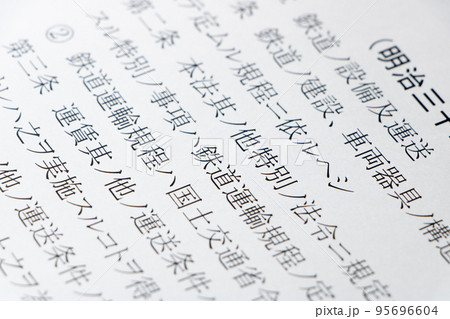 (明治三十
鉄道ノ設備及運送
鉄道ノ建設、車両器具ノ構造
テ定ムル規程ニ依ルヘシ
第二条 本法其ノ他特別ノ法令ニ規定
スル特別ノ事項ハ鉄道運輸規程ノ定
② 鉄道運輸規程ハ国土交通省令
第三条 運賃其ノ他ノ運送条件
ハ之ヲ実施スルコトヲ得
他ノ運送条件ノ
上之ヲ
PIXTA
pixta.jp - 95696604